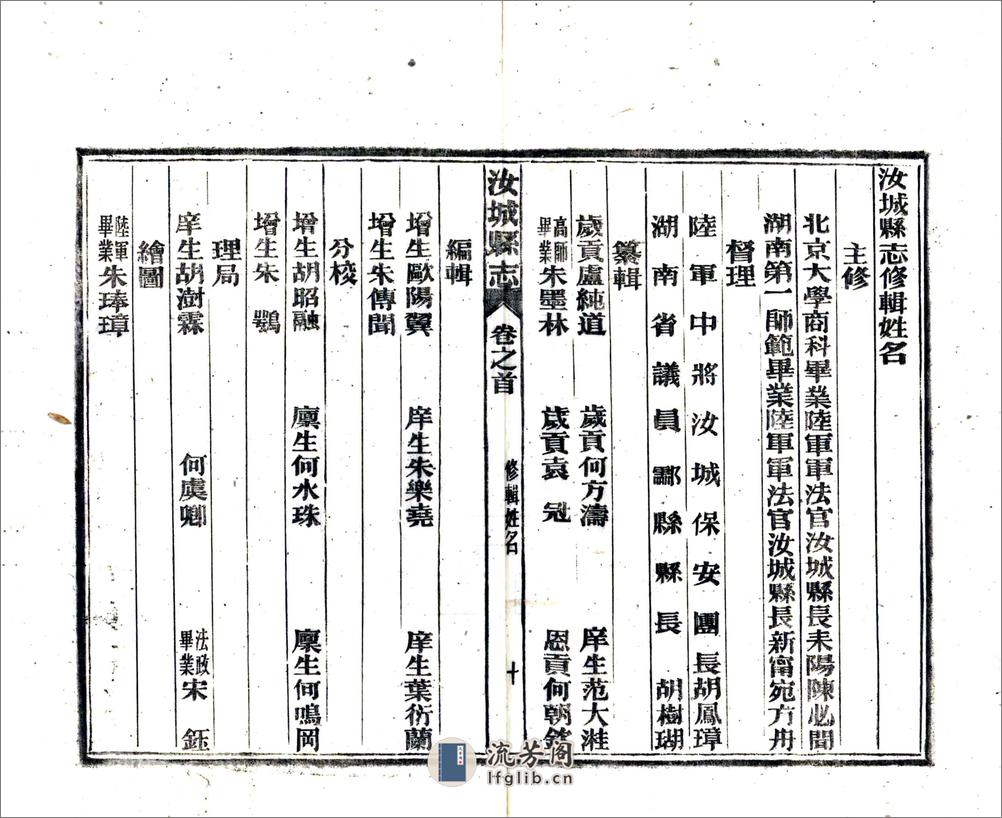 汝城縣志修輯姓名
主修
北京大學商科畢業陸軍軍法官汝城縣長耒陽陳必聞
湖南第一師範畢業陸軍軍法官汝城縣長新甯宛方舟
督理
陸軍中將汝城保安團長胡鳳璋
湖南省議員酃縣縣長胡樹瑚
纂輯
歲貢盧純道 歲貢何方濤 庠生范大溎
高師畢業朱墨林 歲貢袁冠 恩貢何朝
汝城縣志 卷之首 修輯姓名 十
編輯
增生歐陽翼 庠生朱樂堯 庠生葉衍蘭
增生朱傳聞
分校
增生胡昭融 廩生何水珠 廩生何鳴岡
增生宋鶚
理局
庠生胡澍霖 何虞卿 法政畢業宋鈺
繪圖
陸軍畢業朱琫璋
流芳阁
lfglib.cn